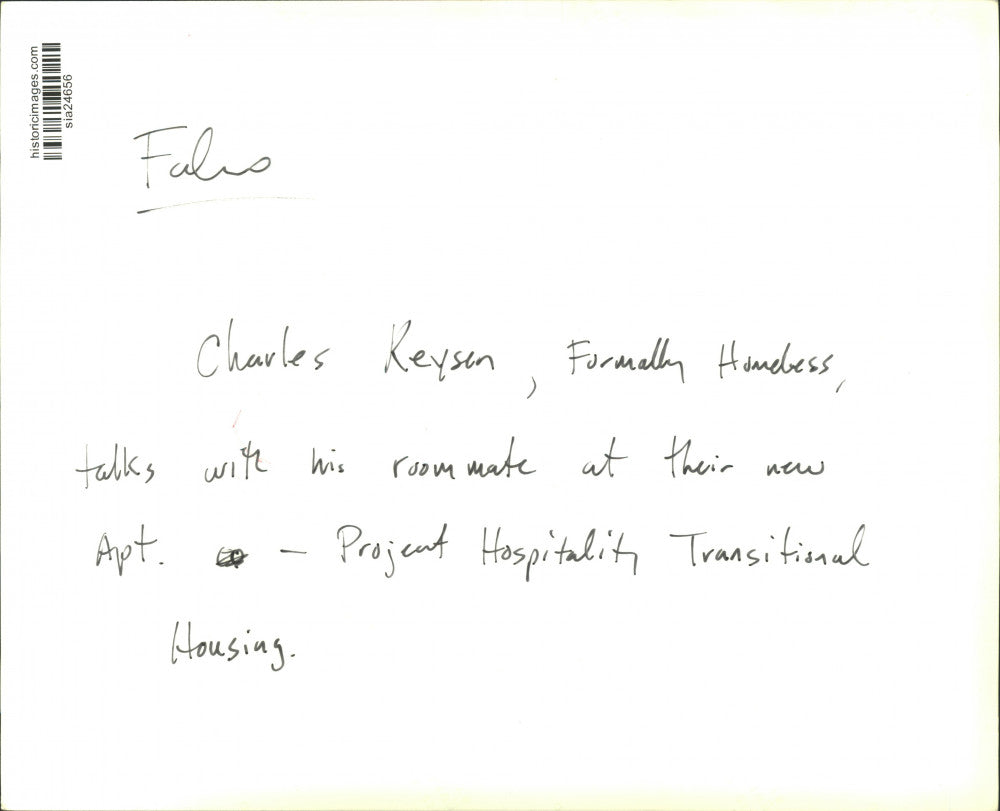 historicimages.com
sia24656
Charles Keysen, Formally Homeless,
talks with his roommate at their new
Apt. — Project Hospitality Transitional
Housing.